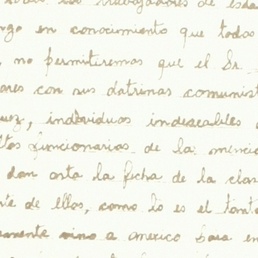 los trabajadores de esta
ngo en conocimiento que todos
, no permitiremos que el Sr.
ores con sus datrinas comunist
uez, individuos indeseables
ltos funcionarios de la mencio
dan asta la fecha de la clas
te de ellos, como lo es el tonto
amente vino a america para en